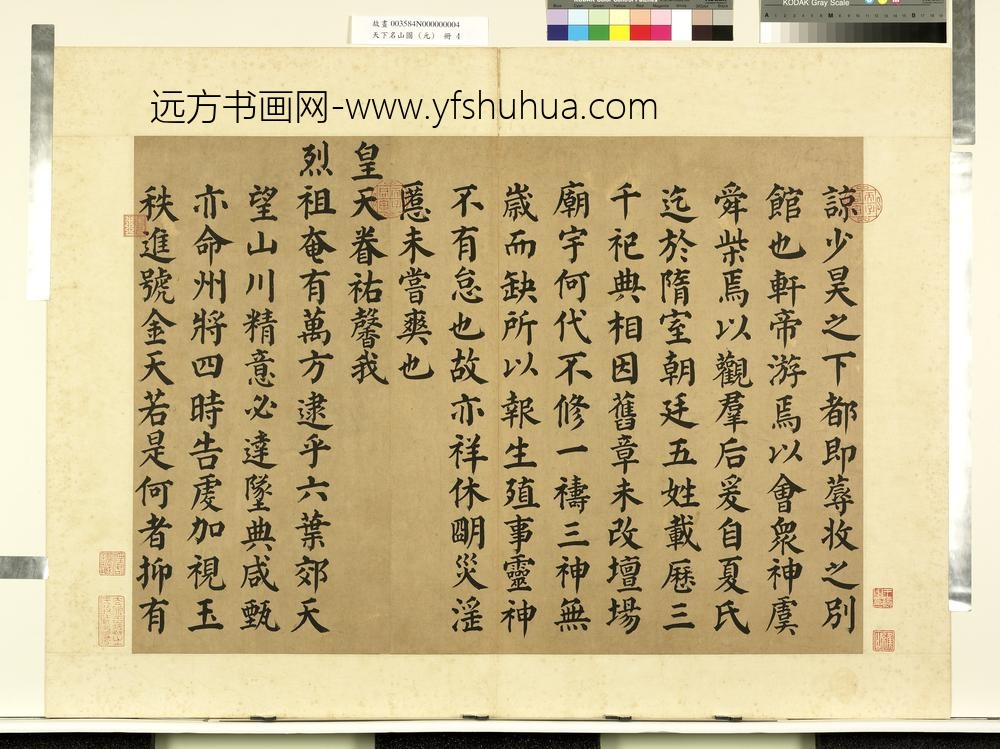 故畫 003584N000000004
天下名山圖（元） 冊 4
KODAK Gray Scale
远方书画网-www.yfshuhua.com
諒少昊之下都即蓐收之別
館也軒帝游焉以會衆神虞
舜柴焉以觀羣后爰自夏氏
迄於隋室朝廷五姓載歷三
千祀典相因舊章未改壇場
廟宇何代不修一禱三神無
歲而缺所以報生殖事靈神
不有怠也故亦祥休朙災淫
慝未嘗爽也
皇天眷祐馨我
烈祖奄有萬方逮乎六葉郊天
望山川精意必達墜典咸甄
亦命州將四時告虔加視玉
秩進號金天若是何者抑有